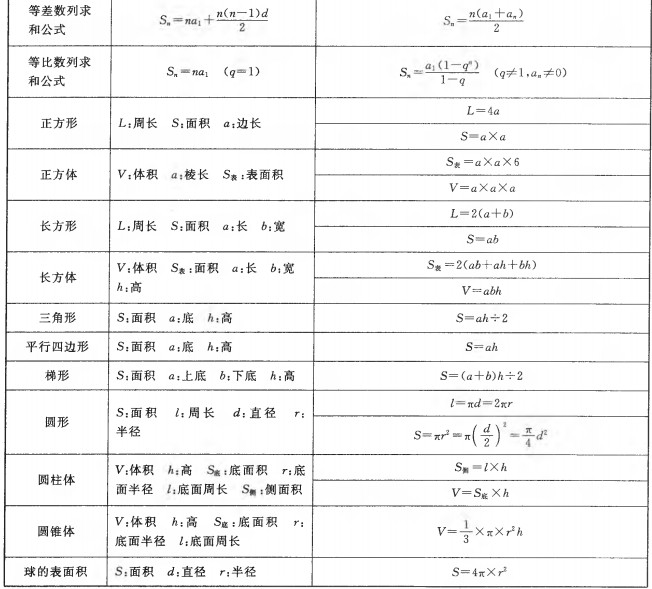 等差数列求和公式 Sₙ=na₁+n(n-1)d/2 Sₙ=n(a₁+aₙ)/2
等比数列求和公式 Sₙ=na₁ (q=1) Sₙ=a₁(1-qⁿ)/1-q (q≠1,aₙ≠0)
正方形 L:周长 S:面积 a:边长 L=4a
S=a×a
正方体 V:体积 a:棱长 S表:表面积 S表=a×a×6
V=a×a×a
长方形 L:周长 S:面积 a:长 b:宽 L=2(a+b)
S=ab
长方体 V:体积 S表:面积 a:长 b:宽
h:高 S表=2(ab+ah+bh)
V=abh
三角形 S:面积 a:底 h:高 S=ah÷2
平行四边形 S:面积 a:底 h:高 S=ah
梯形 S:面积 a:上底 b:下底 h:高 S=(a+b)h÷2
圆形 S:面积 l:周长 d:直径 r:
半径 l=πd=2πr
S=πr²=π(d/2)²=π/4d²
圆柱体 V:体积 h:高 S底:底面积 r:底
面半径 l:底面周长 S侧:侧面积 S侧=l×h
V=S底×h
圆锥体 V:体积 h:高 S底:底面积 r:
底面半径 l:底面周长 V=1/3×π×r²h
球的表面积 S:面积 d:直径 r:半径 S=4π×r²